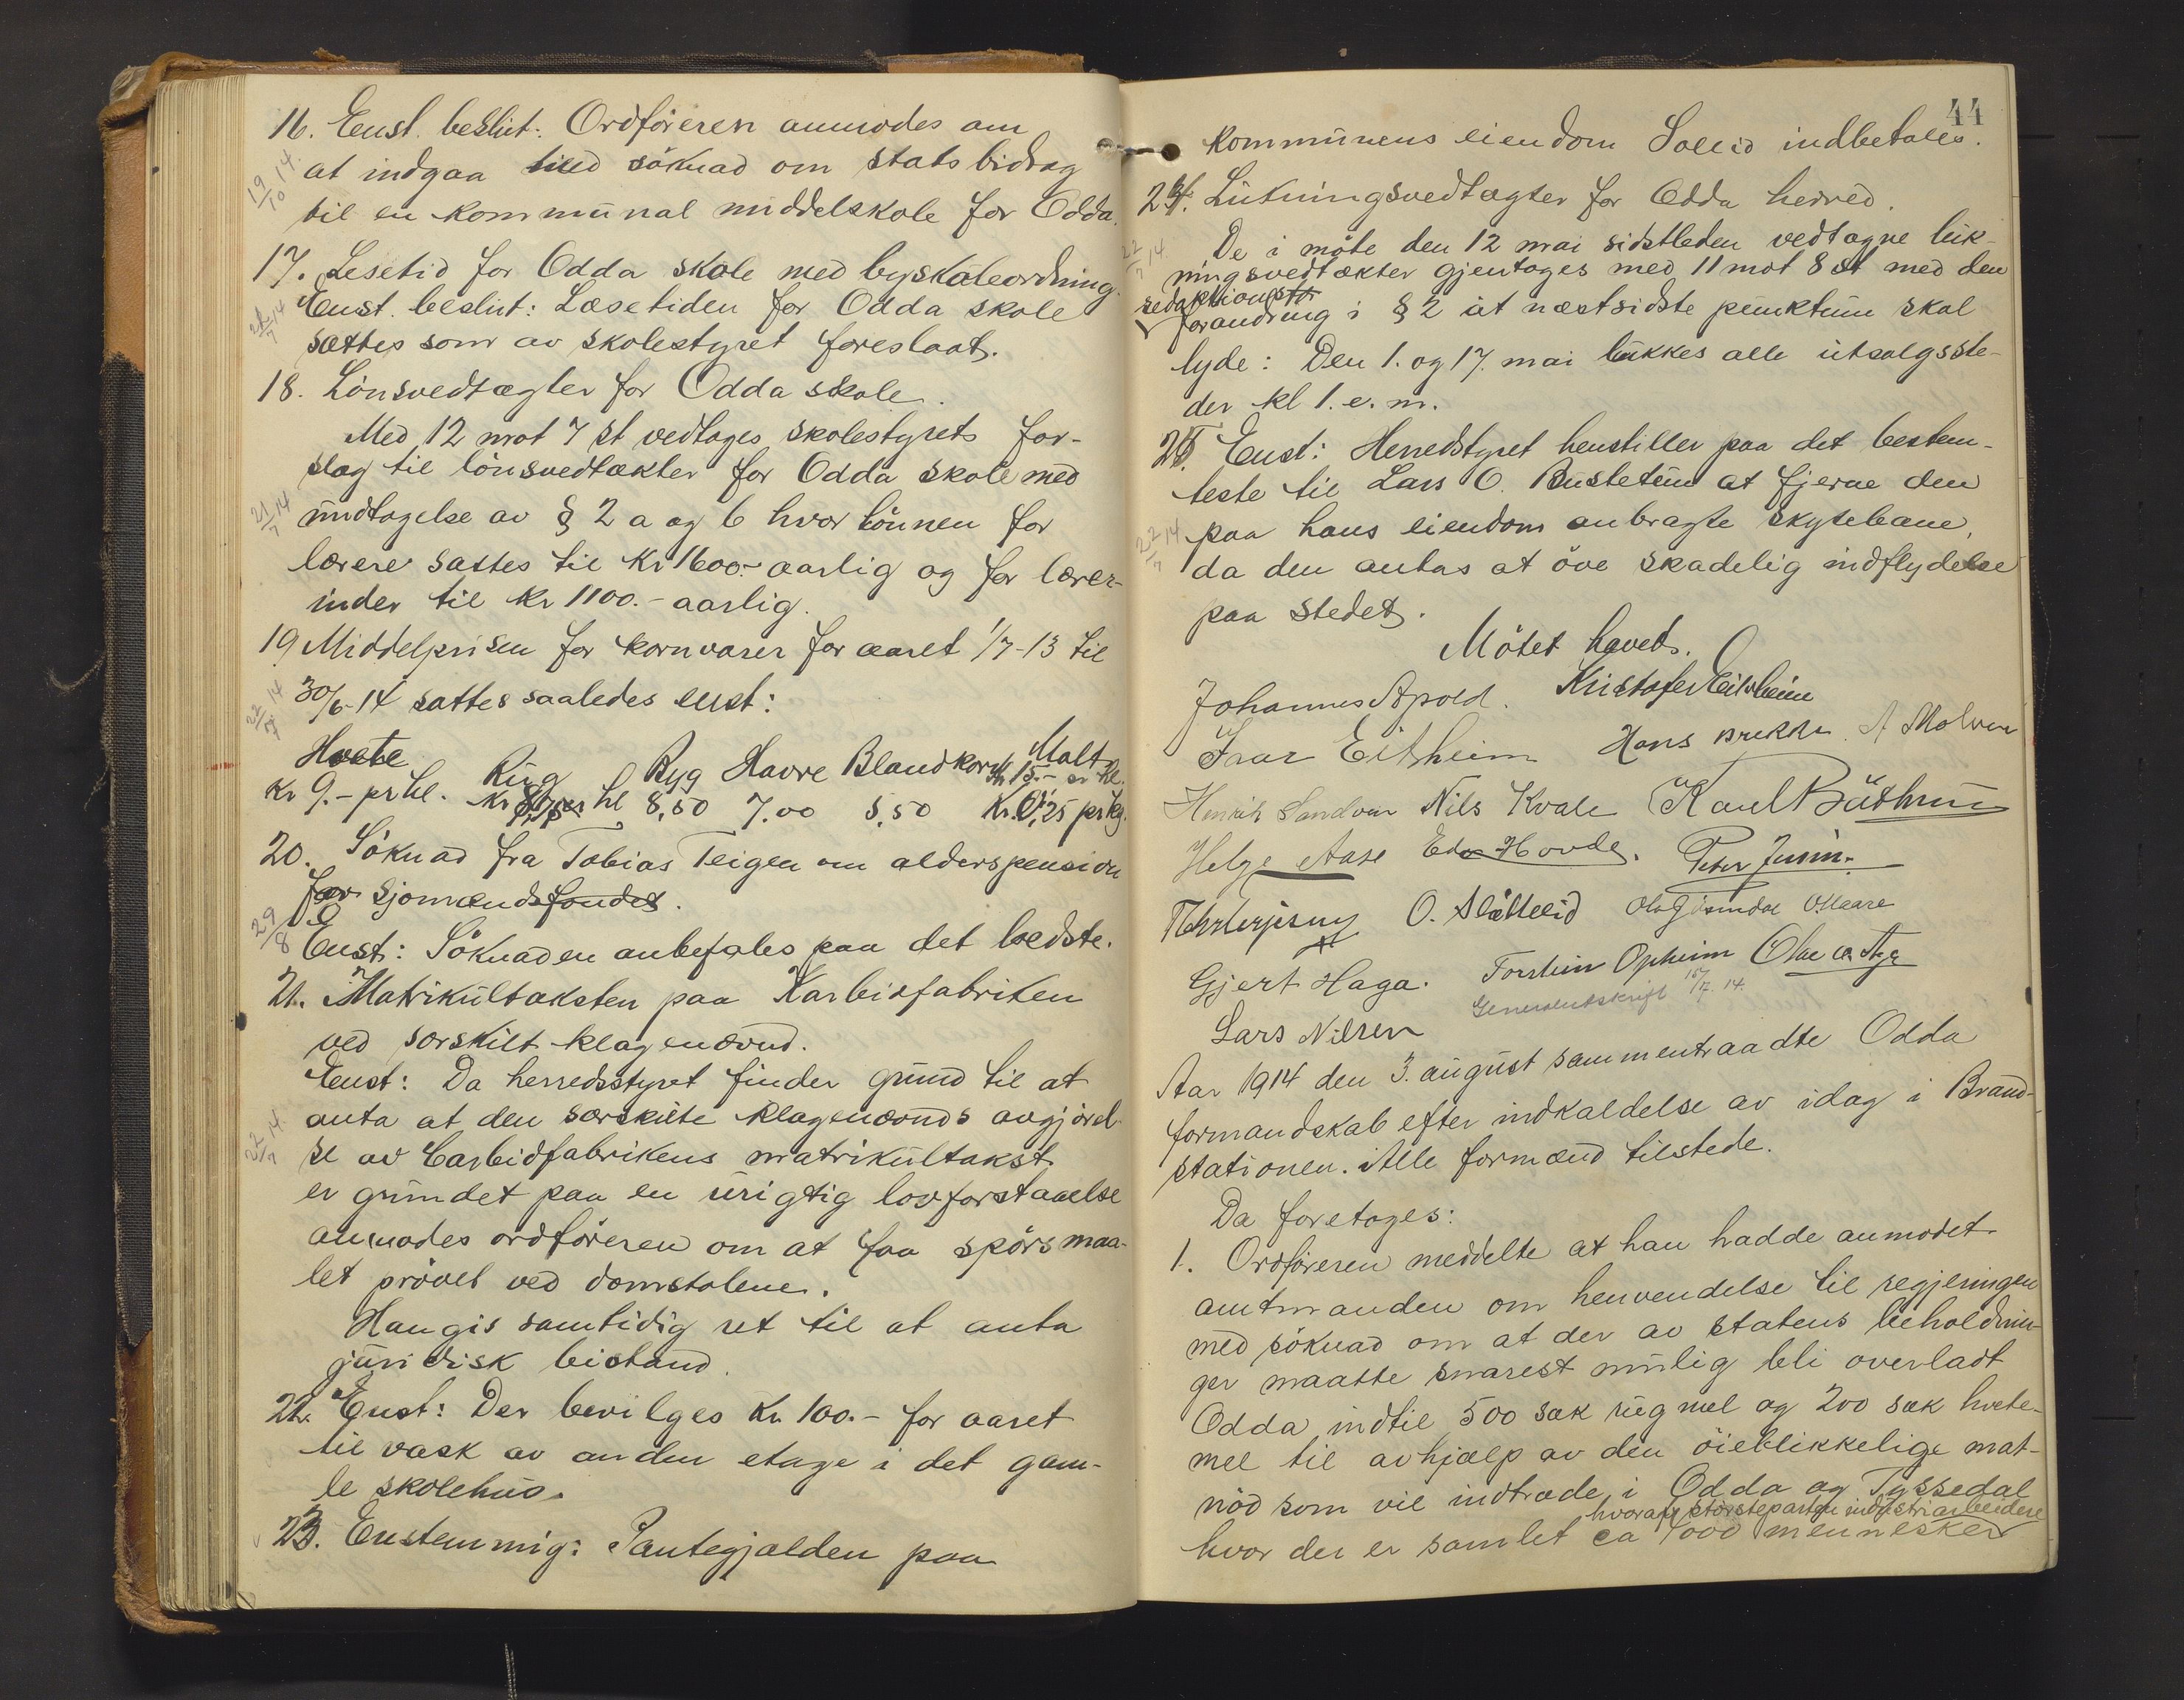 16. Enst. beslut: Ordföreren anmodes om
at indgaa med söknad om statsbidrag
19/10 14.
til en kommunal middelskole for Odda.
17. Lesetid for Odda skole med byskoleordning.
Enst. beslut: Læsetiden for Odda skole
22/7 14
sættes som av skolestyret foreslaat.
18. Lönsvedtægter for Odda skole.
Med 12 mot 7 st vedtages skolestyrets for-
slag til lönsvedtækter for Odda skole med
21/7 14
undtagelse av § 2 a og b hvor lönnen for
lærere sættes til kr 1600.- aarlig og for lærer-
inder til kr 1100.- aarlig.
19 Middelprisen for kornvarer for aaret 1/7-13 til
30/6-14 sattes saaledes enst:
22/7 14
Hvete Rug Byg Havre Blandkorn Malt
kr 15.- pr hl.
Kr 9.- pr hl. kr pr hl 8,50 7.00 5,50 kr. 0,25 pr kg.
20. Söknad fra Tobias Teigen om alderspension
for sjömandsfondet.
29/8
Enst: Söknaden anbefales paa det bedste.
21. Matrikultaksten paa Karbidfabriken
ved særskilt klagenævnd.
Enst: Da herredsstyret finder grund til at
anta at den særskilte klagenævnds avgjörel-
22/7 14.
se av Carbidfabrikens matrikultakst
er grundet paa en urigtig lovforstaaelse
anmodes ordföreren om at faa spörsmaa-
let prövet ved domstolene.
Han gis samtidig ret til at anta
juridisk bistand.
22. Enst: Der bevilges kr. 100.- for aaret
til vask av anden etage i det gam-
le skolehus.
23. Enstemmig: Pantegjælden paa
44
kommunens eiendom Solli indbetales.
24. Lukningsvedtægter for Odda herred.
22/7 14.
De i möte den 12 mai sidstleden vedtagne luk-
ningsvedtækter gjentages med 11 mot 8 st med den
redaktions
forandring i § 2 at næstsidste punktum skal
lyde: Den 1. og 17. mai lukkes alle utsalgsste-
der kl 1. e. m.
25. Enst: Herredstyret henstiller paa det bestem-
teste til Lars O. Bustetun at fjerne den
22/7 14
paa hans eiendom anbragte skytebane,
da den antas at öve skadelig indflydelse
paa stedet.
Mötet hævet.
Johannes Apold. Kristofer Eitrheim
Ivar Eitrheim Hans Brekke. A Molven
Henrik Sandven Nils Kvale Karl Båthun
Helge Aase Edv Hovde. Peter
O. Slåttelid
Gjert Haga. Torstein Opheim Olav
Generalutskrift 15/7. 14.
Lars Nilsen
Aar 1914 den 3. august sammentraadte Odda
formandskab efter indkaldelse av idag i Brand-
stationen. Alle formænd tilstede.
Da foretoges:
1. Ordföreren meddelte at han hadde anmodet
amtmanden om henvendelse til regjeringen
med söknad om at der av statens beholdnin-
ger maatte snarest mulig bli overladt
Odda indtil 500 sæk rugmel og 200 sæk hvete-
mel til avhjælp av den öieblikkelige mat-
nöd som vil indtræde i Odda og Tyssedal
hvorav störsteparten industriarbeidere
hvor der er samlet ca 7000 mennesker